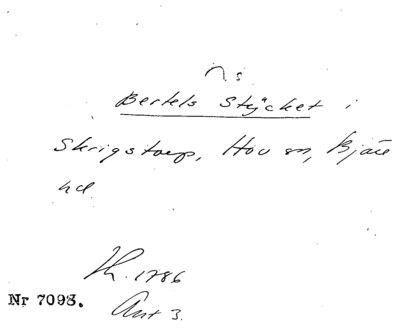 Ns
Bertels Stycket i
Skrigstorp, Hov sn, Bjäre
hd.
Lh. 1786
Nr 7093. Akt 3.